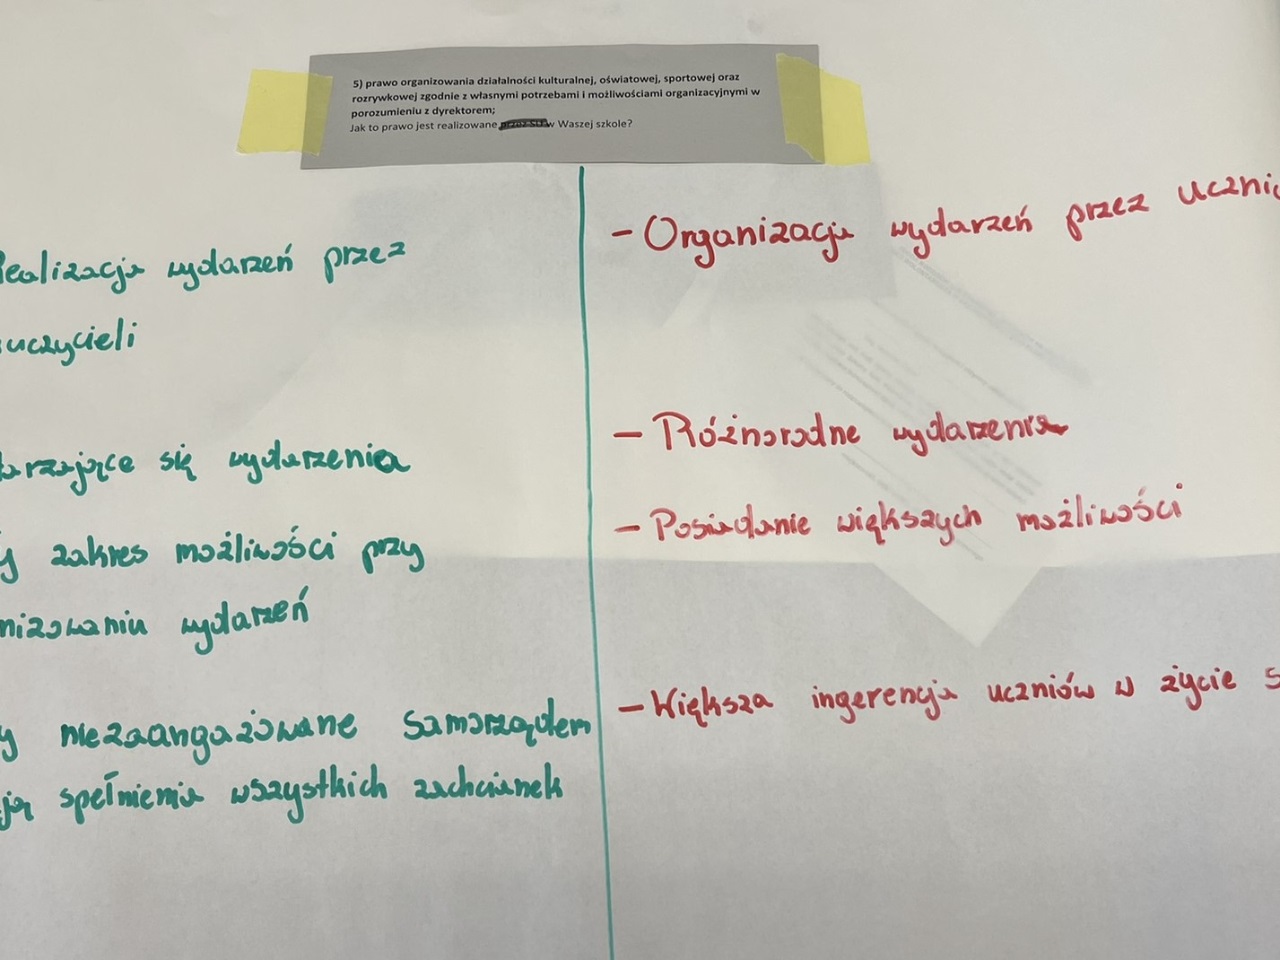 5) prawo organizowania działalności kulturalnej, oświatowej, sportowej oraz
rozrywkowej zgodnie z własnymi potrzebami i możliwościami organizacyjnymi w
porozumieniu z dyrektorem;
Jak to prawo jest realizowane w Waszej szkole?
Realizacja wydarzeń przez
uczycieli
tarzające się wydarzenia
y zakres możliwości przy
nizowaniu wydarzeń
y niezaangażowane samorządem
ją spełnienia wszystkich zachcianek
- Organizacja wydarzeń przez uczni
- Różnorodne wydarzenia
- Posiadanie większych możliwości
- Większa ingerencja uczniów w życie s